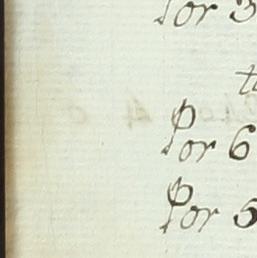 Por 3
t
Por 6
Por 5